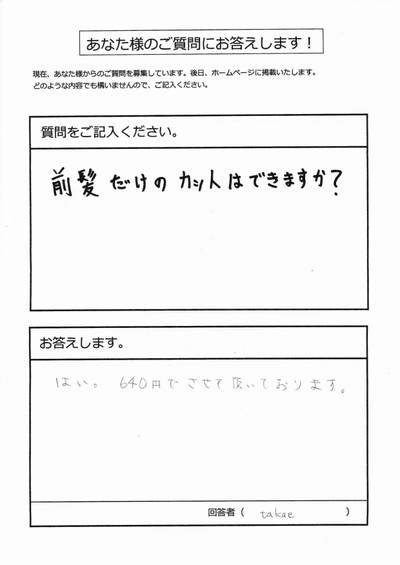 あなた様のご質問にお答えします！
現在、あなた様からのご質問を募集しています。後日、ホームページに掲載いたします。
どのような内容でも構いませんので、ご記入ください。
質問をご記入ください。
前髪だけのカットはできますか？
お答えします。
はい。640円でさせて頂いております。
回答者（ takae ）